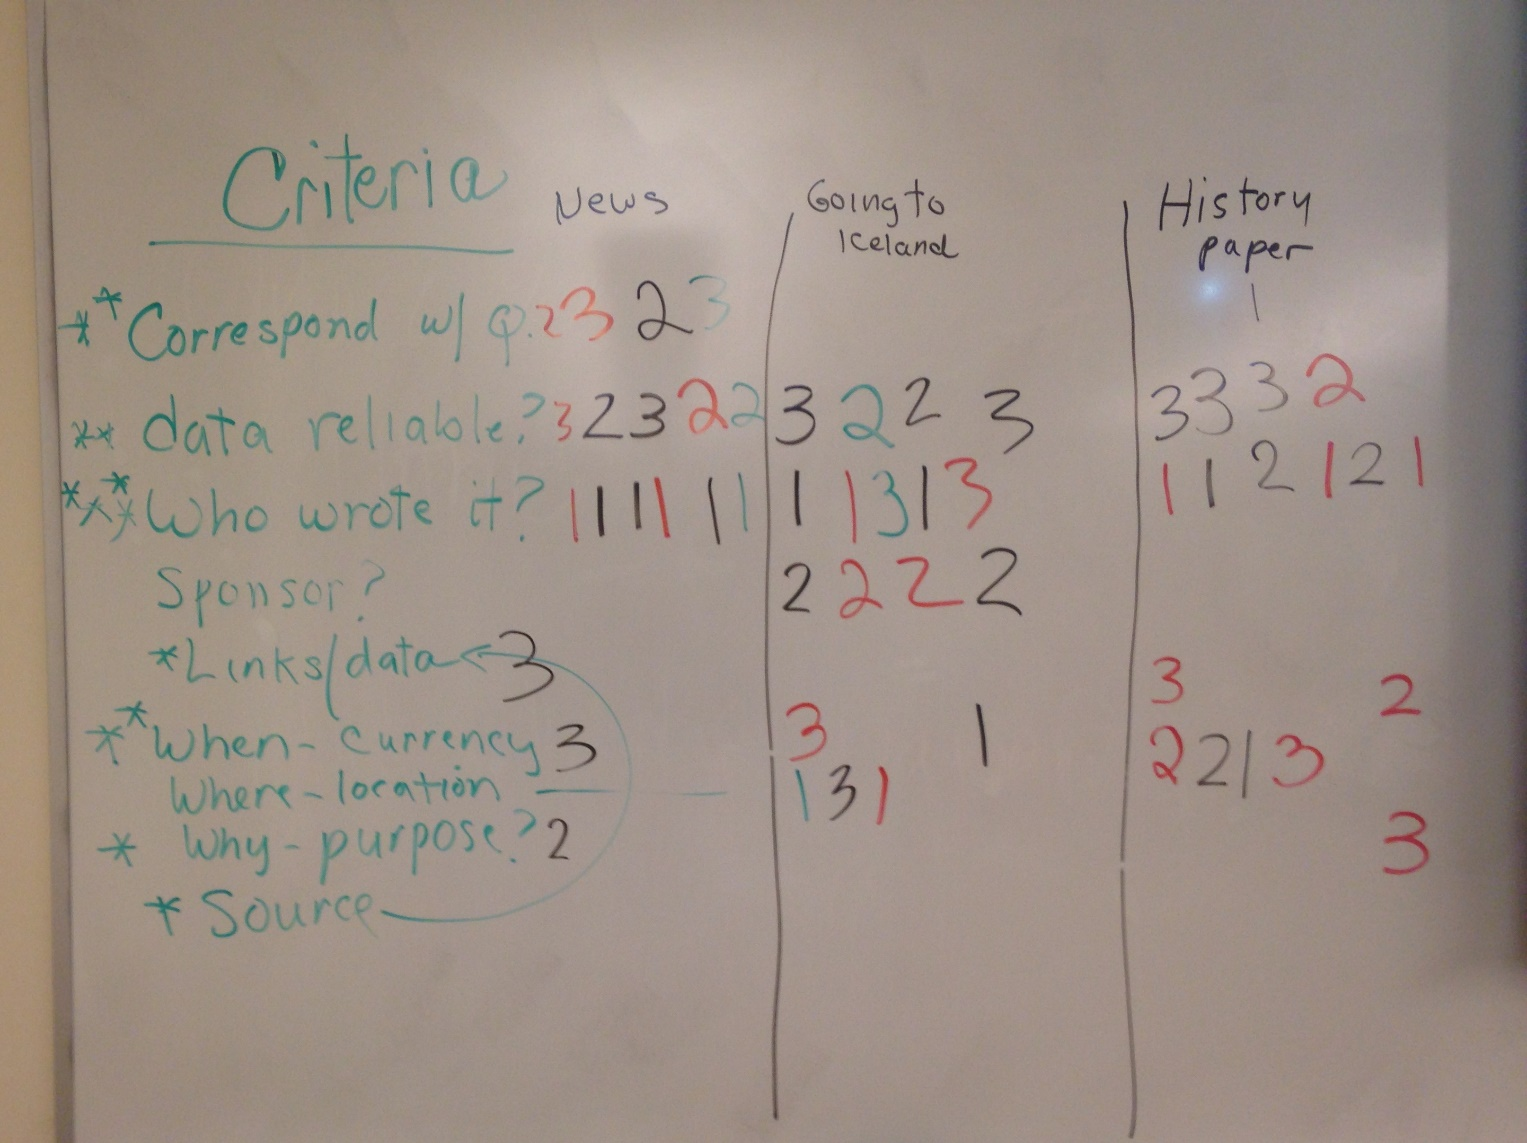 Criteria News Going to Iceland History paper
** Correspond w/ Q. 2 3 2 3 1
** data reliable? 3 2 3 2 2 3 2 2 3 3 3 3 2
**** Who wrote it? 1 1 1 1 1 1 1 1 3 1 3 1 1 2 1 2 1
Sponsor? 2 2 2 2
*Links/data 3 3 2
** When - currency 3 3 1 2 2 1 3
Where - location 1 3 1
* Why - purpose? 2 3
* Source